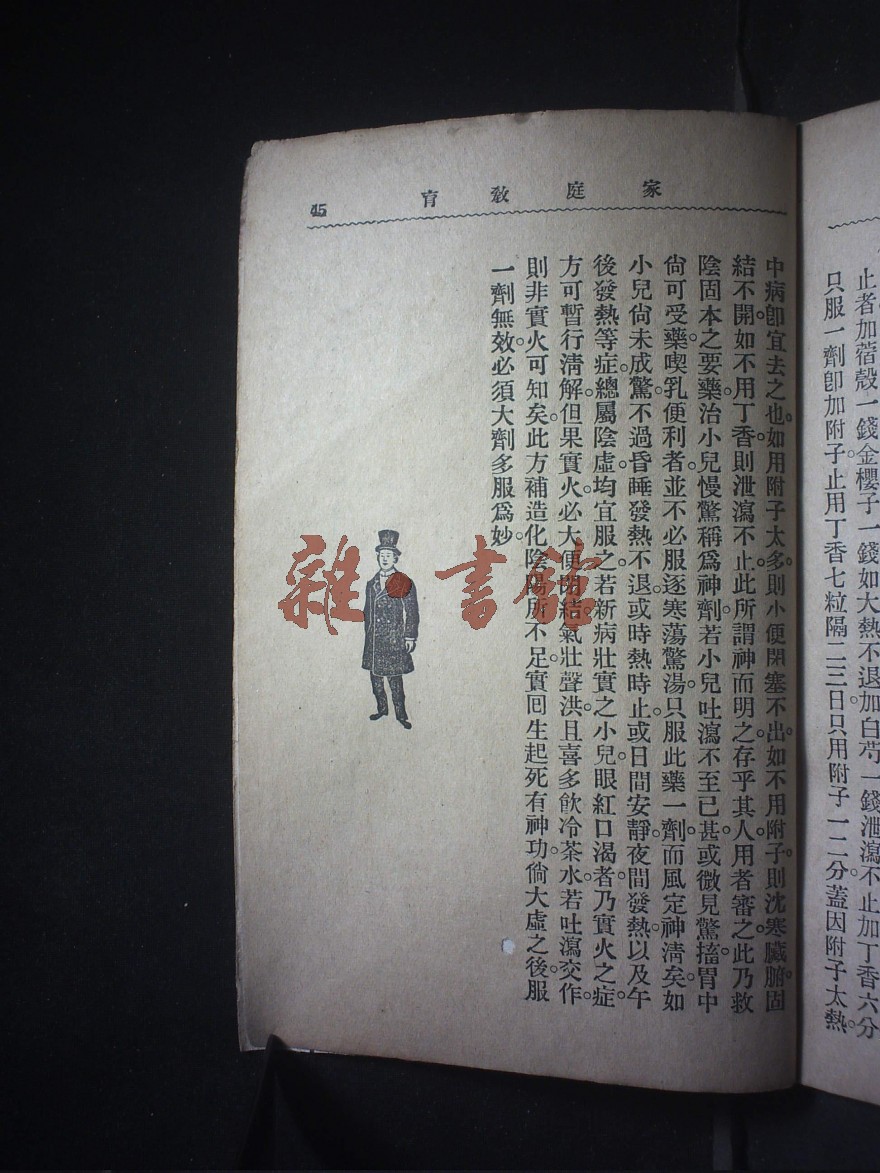 止者加蓿殼一錢金櫻子一錢如大熱不退加白芍一錢泄瀉不止加丁香六分
只服一劑卽加附子止用丁香七粒隔二三日只用附子一二分蓋因附子太熱。
家庭教育
45
中病卽宜去之也。如用附子太多。則小便閉塞不出。如不用附子。則沈寒臟腑。固
結不開。如不用丁香。則泄瀉不止。此所謂神而明之。存乎其人。用者審之。此乃救
陰固本之要藥。治小兒慢驚。稱爲神劑。若小兒吐瀉不至已甚。或微見驚搐。胃中
尙可受藥。喫乳便利者。並不必服逐寒蕩驚湯。只服此藥一劑。而風定神淸矣。如
小兒尙未成驚。不過昏睡發熱不退。或時熱時止。或日間安靜。夜間發熱。以及午
後發熱等症。總屬陰虛。均宜服之。若新病壯實之小兒。眼紅口渴者。乃實火之症。
方可暫行淸解。但果實火。必大便閉結。氣壯聲洪。且喜多飮冷茶水。若吐瀉交作。
則非實火可知矣。此方補造化陰陽所不足。實回生起死有神功。倘大虛之後。服
一劑無效。必須大劑多服爲妙
雜·書館